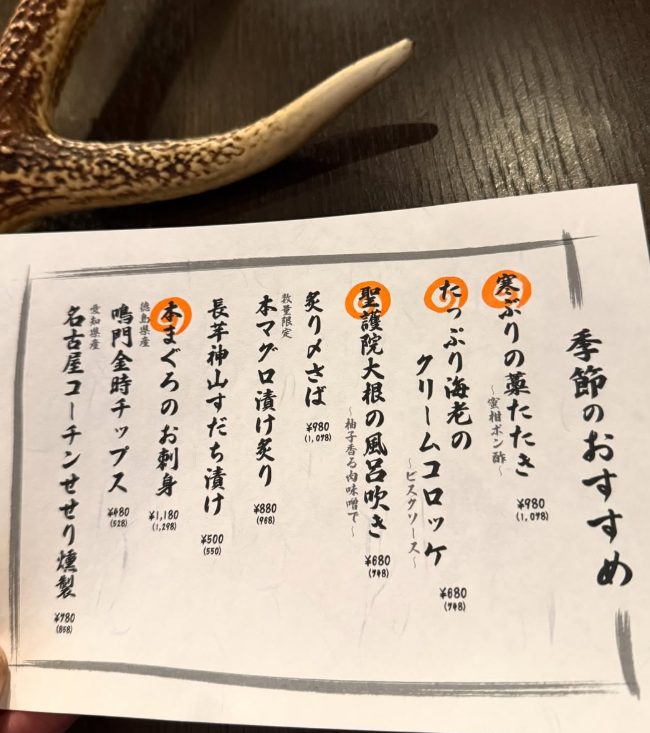 季節のおすすめ
寒ぶりの藁たたき
~蜜柑ポン酢~
¥980
(1,078)
たっぷり海老の
クリームコロッケ
~ビスクソース~
¥680
(748)
聖護院大根の風呂吹き
~柚子香る肉味噌で~
¥680
(748)
炙り〆さば
¥980
(1,078)
数量限定
本マグロ漬け炙り
¥880
(968)
長芋神山すだち漬け
¥500
(550)
本まぐろのお刺身
¥1,180
(1,298)
徳島県産
鳴門金時チップス
¥480
(528)
愛知県産
名古屋コーチンせせり燻製
¥780
(858)